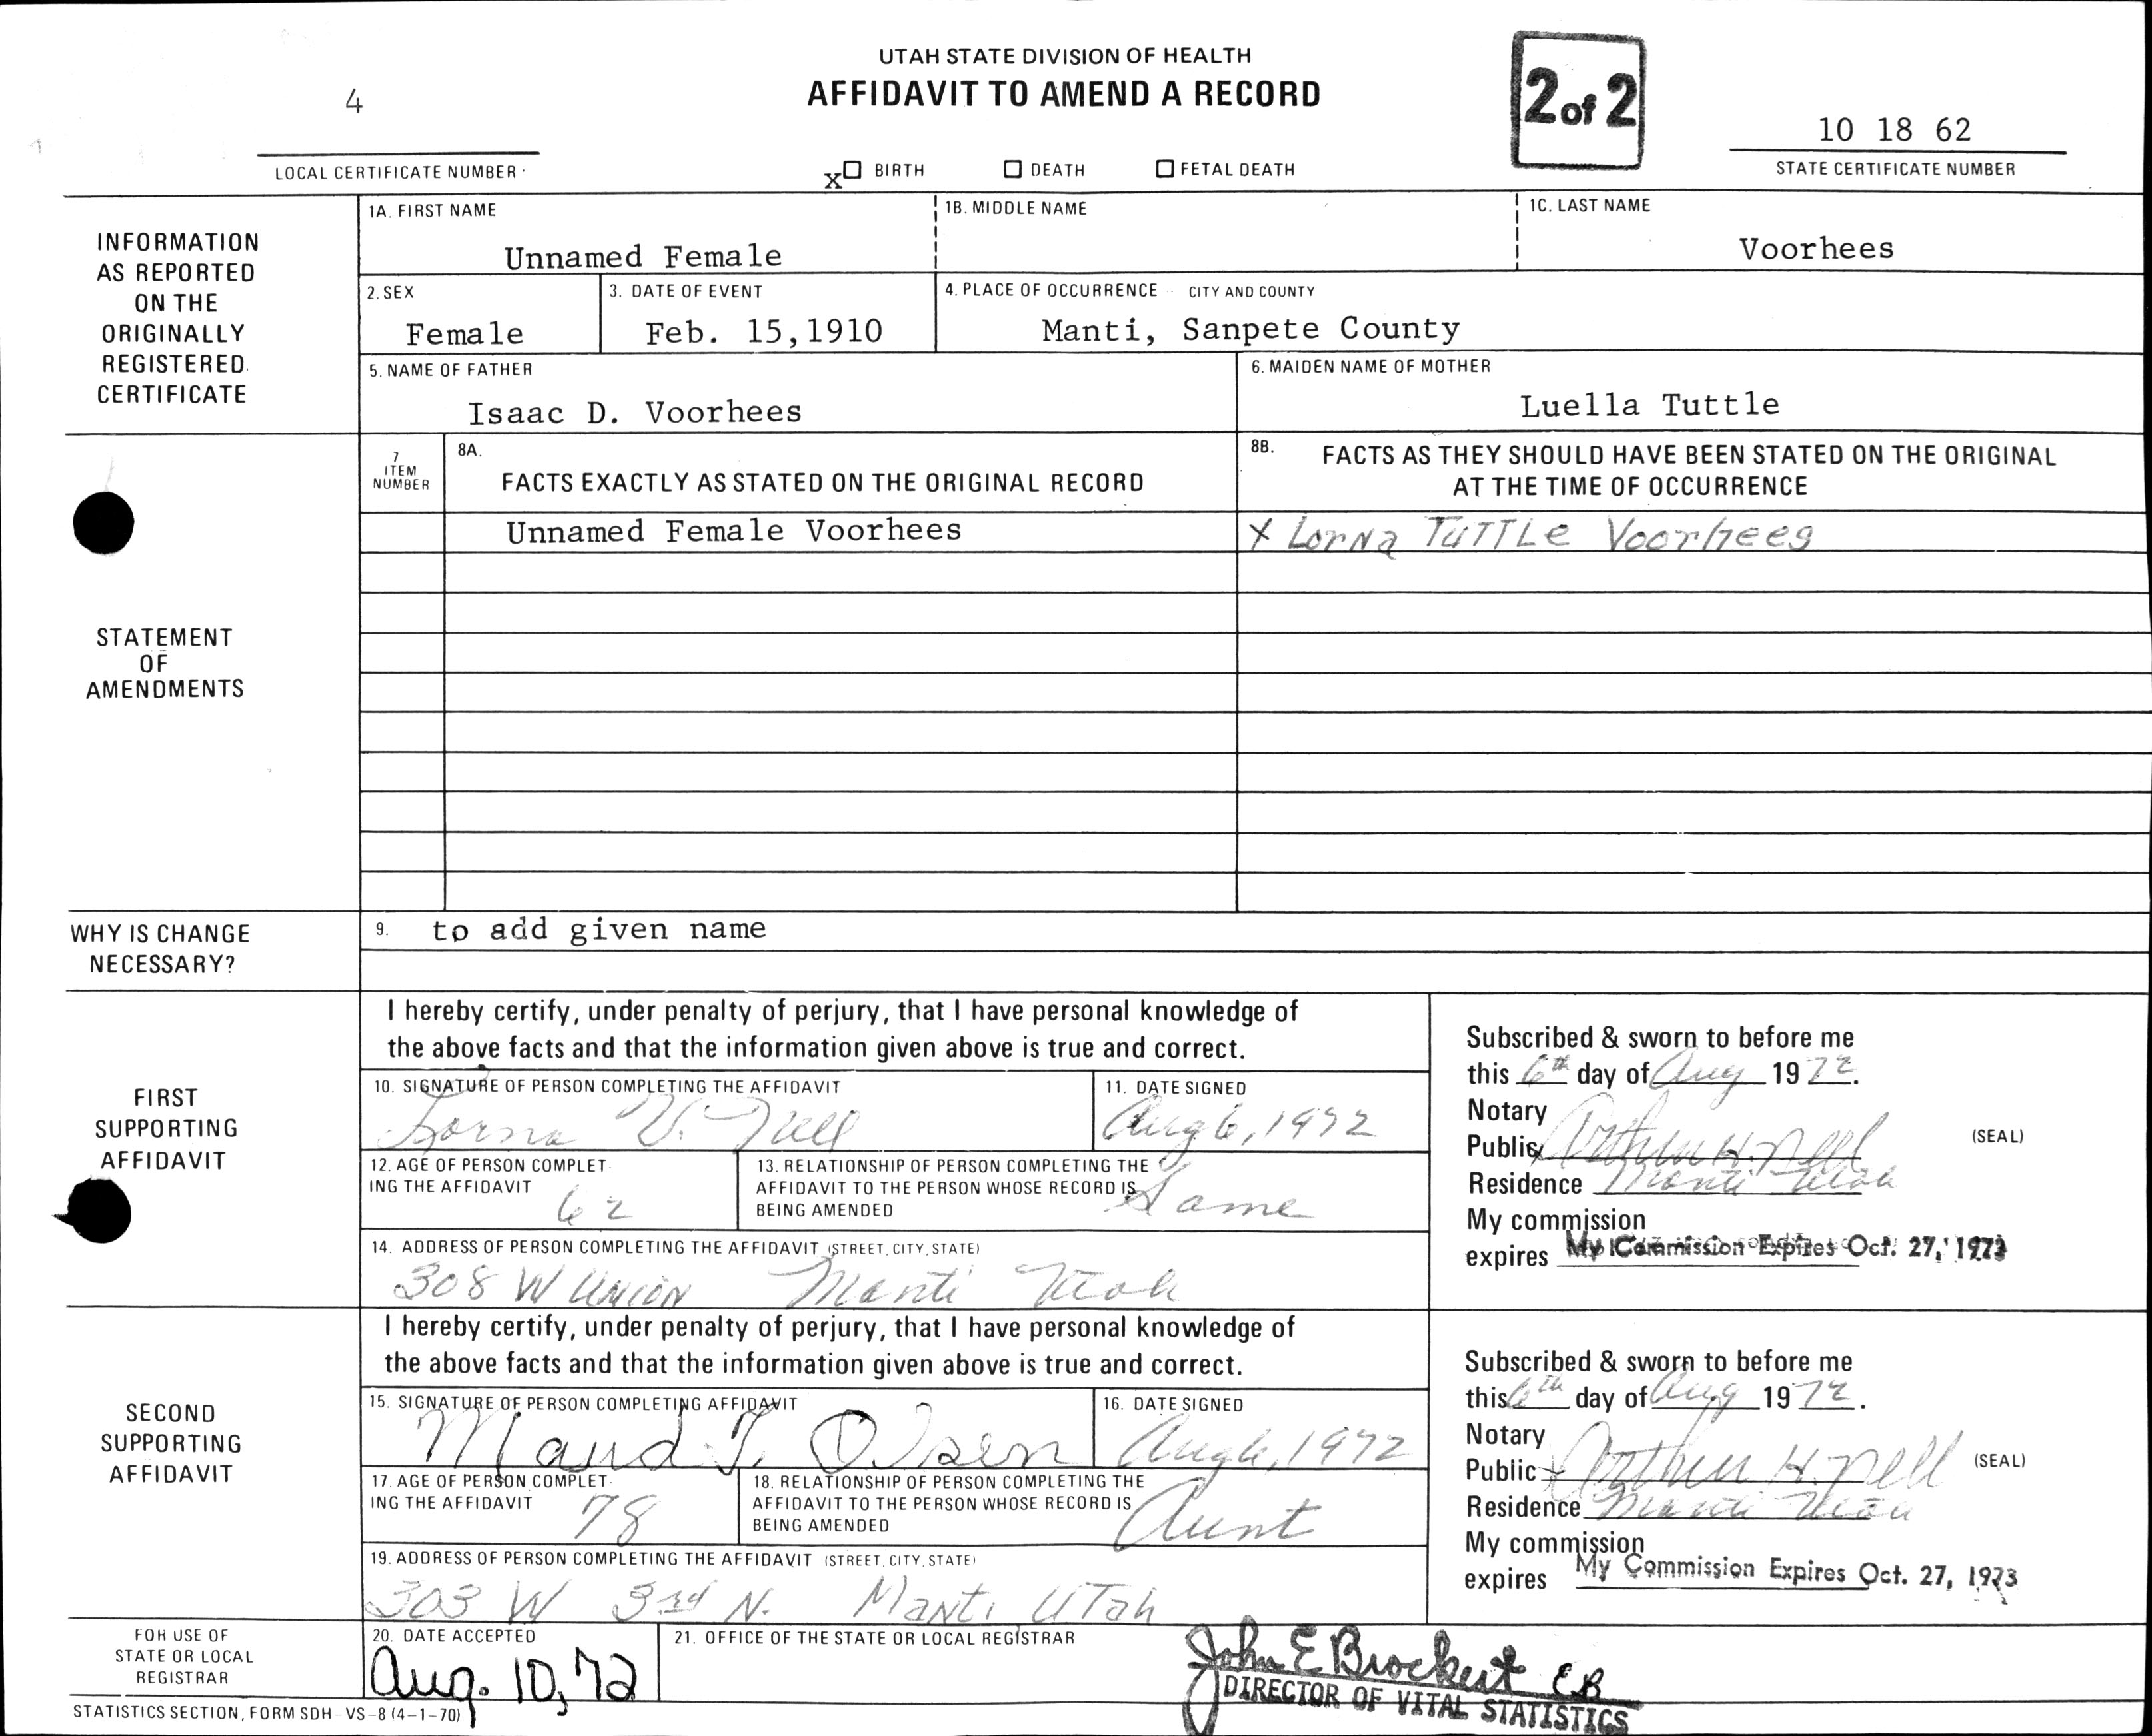 UTAH STATE DIVISION OF HEALTH
AFFIDAVIT TO AMEND A RECORD
2 of 2
4
10 18 62
LOCAL CERTIFICATE NUMBER
X☐ BIRTH ☐ DEATH ☐ FETAL DEATH
STATE CERTIFICATE NUMBER
INFORMATION
AS REPORTED
ON THE
ORIGINALLY
REGISTERED
CERTIFICATE
1A. FIRST NAME
Unnamed Female
1B. MIDDLE NAME
1C. LAST NAME
Voorhees
2. SEX
Female
3. DATE OF EVENT
Feb. 15,1910
4. PLACE OF OCCURRENCE -- CITY AND COUNTY
Manti, Sanpete County
5. NAME OF FATHER
Isaac D. Voorhees
6. MAIDEN NAME OF MOTHER
Luella Tuttle
STATEMENT
OF
AMENDMENTS
7
ITEM
NUMBER
8A.
FACTS EXACTLY AS STATED ON THE ORIGINAL RECORD
8B. FACTS AS THEY SHOULD HAVE BEEN STATED ON THE ORIGINAL
AT THE TIME OF OCCURRENCE
Unnamed Female Voorhees
X Lorna TUTTLE Voorhees
WHY IS CHANGE
NECESSARY?
9. to add given name
FIRST
SUPPORTING
AFFIDAVIT
I hereby certify, under penalty of perjury, that I have personal knowledge of
the above facts and that the information given above is true and correct.
10. SIGNATURE OF PERSON COMPLETING THE AFFIDAVIT
Lorna V. Nell
11. DATE SIGNED
Aug 6, 1972
12. AGE OF PERSON COMPLET-
ING THE AFFIDAVIT
62
13. RELATIONSHIP OF PERSON COMPLETING THE
AFFIDAVIT TO THE PERSON WHOSE RECORD IS
BEING AMENDED
Same
14. ADDRESS OF PERSON COMPLETING THE AFFIDAVIT (STREET, CITY, STATE)
308 W UNION Manti Utah
Subscribed & sworn to before me
this 6th day of Aug 1972.
Notary
Public Arthur H. Nell (SEAL)
Residence Manti Utah
My commission
expires My Commission Expires Oct. 27, 1973
SECOND
SUPPORTING
AFFIDAVIT
I hereby certify, under penalty of perjury, that I have personal knowledge of
the above facts and that the information given above is true and correct.
15. SIGNATURE OF PERSON COMPLETING AFFIDAVIT
Maud T. Olsen
16. DATE SIGNED
Aug 6, 1972
17. AGE OF PERSON COMPLET-
ING THE AFFIDAVIT
78
18. RELATIONSHIP OF PERSON COMPLETING THE
AFFIDAVIT TO THE PERSON WHOSE RECORD IS
BEING AMENDED
Aunt
19. ADDRESS OF PERSON COMPLETING THE AFFIDAVIT (STREET, CITY, STATE)
303 W 3rd N. Manti UTah
Subscribed & sworn to before me
this 6th day of Aug 1972.
Notary
Public Arthur H. Nell (SEAL)
Residence Manti Utah
My commission
expires My Commission Expires Oct. 27, 1973
FOR USE OF
STATE OR LOCAL
REGISTRAR
20. DATE ACCEPTED
Aug. 10, 72
21. OFFICE OF THE STATE OR LOCAL REGISTRAR
John E Brockert EB
DIRECTOR OF VITAL STATISTICS
STATISTICS SECTION, FORM SDH-VS-8 (4-1-70)